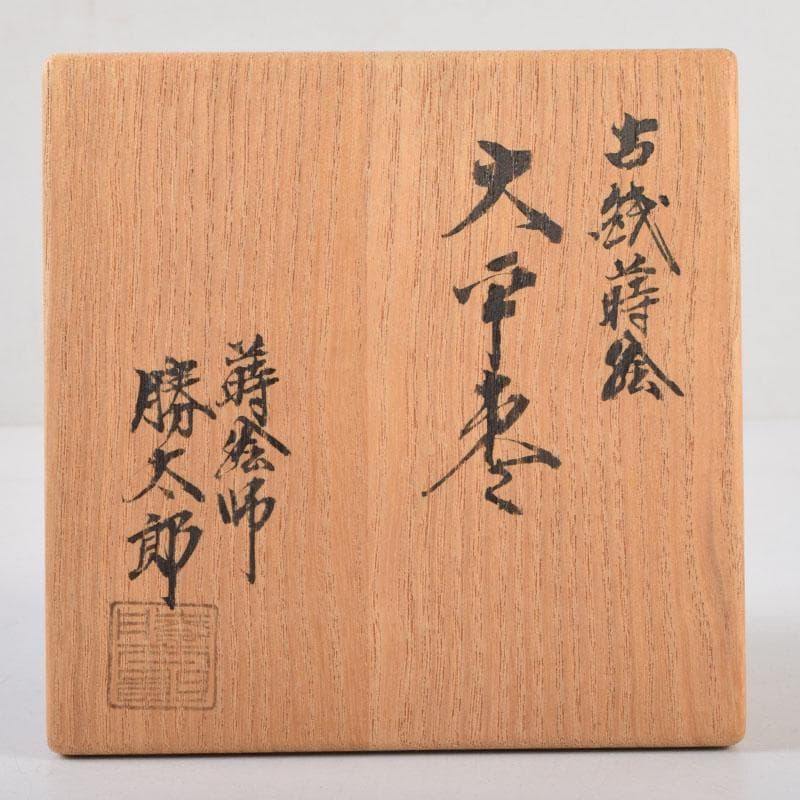 古銭蒔絵
大平棗
蒔絵師
勝太郎